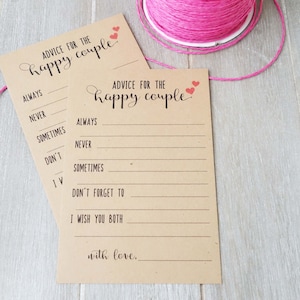 ADVICE FOR THE
happy couple
ALWAYS
NEVER
SOMETIMES
DON'T
I WISH
ADVICE FOR THE
happy couple
ALWAYS
NEVER
SOMETIMES
DON'T FORGET TO
I WISH YOU BOTH
with love,